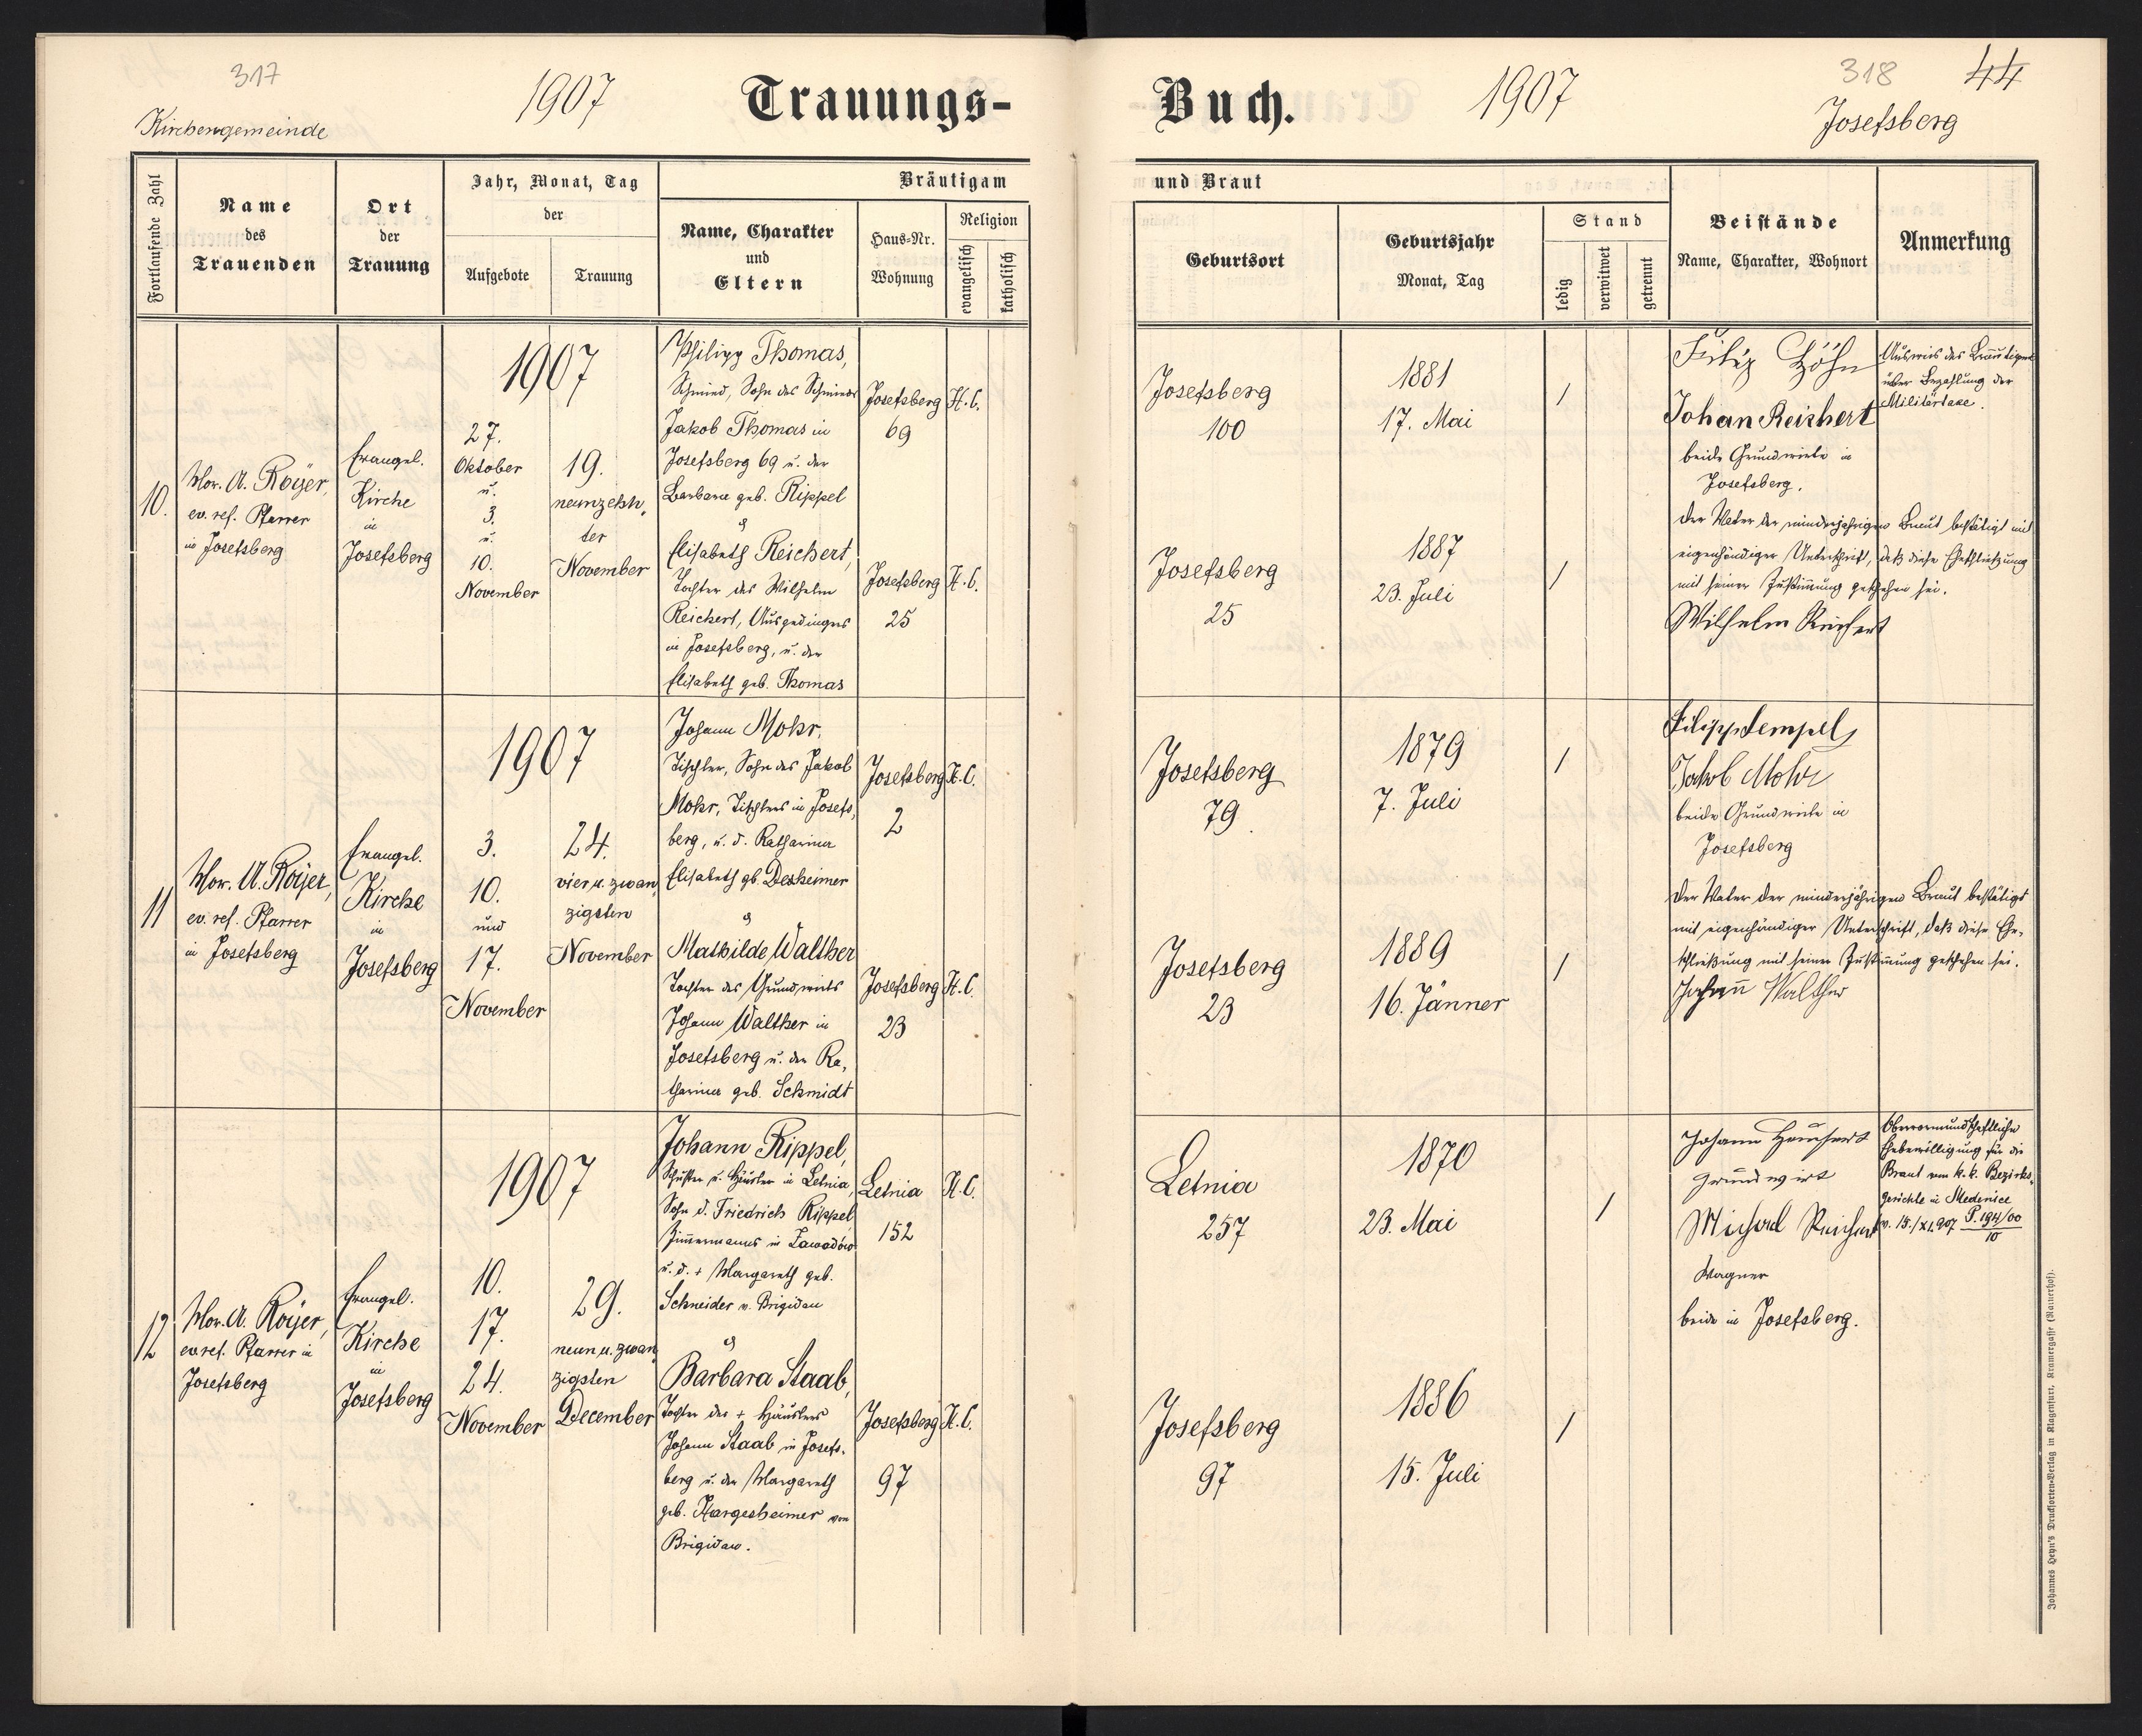 317
1907
Trauungs-
Buch.
1907
318
44
Kirchengemeinde
Josefsberg
Fortlaufende Zahl
Name
des
Trauenden
Ort
der
Trauung
Jahr, Monat, Tag
der
Aufgebote
Trauung
Bräutigam
Name, Charakter
und
Eltern
Haus-Nr.
Wohnung
Religion
evangelisch
katholisch
und Braut
Geburtsort
Geburtsjahr
Monat, Tag
Stand
ledig
verwitwet
getrennt
Beistände
Name, Charakter, Wohnort
Anmerkung
10.
A. Röyer,
ev. ref. Pfarrer
in Josefsberg
Evangel.
Kirche
in
Josefsberg
1907
27.
Oktober
u.
3.
u.
10.
November
19.
neunzehn-
ter
November
Philipp Thomas,
Schmied, Sohn des Schmieds
Jakob Thomas in
Josefsberg 69 u. der
Barbara geb. Rippel
&
Elisabeth Reichert,
Tochter des Wilhelm
Reichert, Ausgedinges
in Josefsberg, u. der
Elisabeth geb. Thomas
Josefsberg
69
H.C.
Josefsberg
25
H.C.
Josefsberg
100
1881
17. Mai
/
Josefsberg
25
1887
23. Juli
/
Johan Reichert
beide Grundwirte in
Josefsberg.
Ausweis des Bräutigams
über Bezahlung der
Militärtaxe.
Der Vater der minderjährigen Braut bestätigt mit
eigenhändiger Unterschrift, daß diese Eheschließung
mit seiner Zustimmung geschehen sei.
Wilhelm Reichert
11
A. Röyer,
ev. ref. Pfarrer
in Josefsberg
Evangel.
Kirche
in
Josefsberg
1907
3.
10.
und
17.
November
24.
vier u. zwan
zigsten
November
Johann Mohr,
Tischler, Sohn des Jakob
Mohr, Tischlers in Josefs-
berg, u. d. Katharina
Elisabeth gb. Desheimer
&
Mathilde Walther
Tochter des Grundwirts
Johann Walther in
Josefsberg u. der Ka-
tharina geb. Schmidt
Josefsberg
2
H.C.
Josefsberg
23
H.C.
Josefsberg
79
1879
7. Juli
/
Josefsberg
23
1889
16. Jänner
/
Filipp Hempel,
Jakob Mohr
beide Grundwirte in
Josefsberg
Der Vater der minderjährigen Braut bestätigt
mit eigenhändiger Unterschrift, daß diese Ehe-
schließung mit seiner Zustimmung geschehen sei.
Johann Walther
12
A. Röyer,
ev. ref. Pfarrer in
Josefsberg
Evangel.
Kirche
in
Josefsberg
1907
10.
17.
24.
November
29.
neun u. zwan
zigsten
December
Johann Rippel,
Schuster u. Häusler in Letnia,
Sohn d. Friedrich Rippel
Zimmermanns in Zawadów
u. d. + Margareth geb.
Schneider v. Brigidau
&
Barbara Staab,
Tochter des + Häuslers
Johann Staab in Josefs-
berg u. der Margareth
geb. Hargesheimer von
Brigidau.
Letnia
152
H.C.
Josefsberg
97
H.C.
Letnia
257
1870
23. Mai
/
Josefsberg
97
1886
15. Juli
/
Johann
Grundwirt
Michael Reichert
Wagner
beide in Josefsberg.
Obervormundschaftliche
Ehebewilligung für die
Braut vom k. k. Bezirks-
gerichte in Medenice
v. 15./XI.907 P. 194/00
10
Johannes Heyn's Drucksorten-Verlag in Klagenfurt, Kramergasse (Rainerhof).